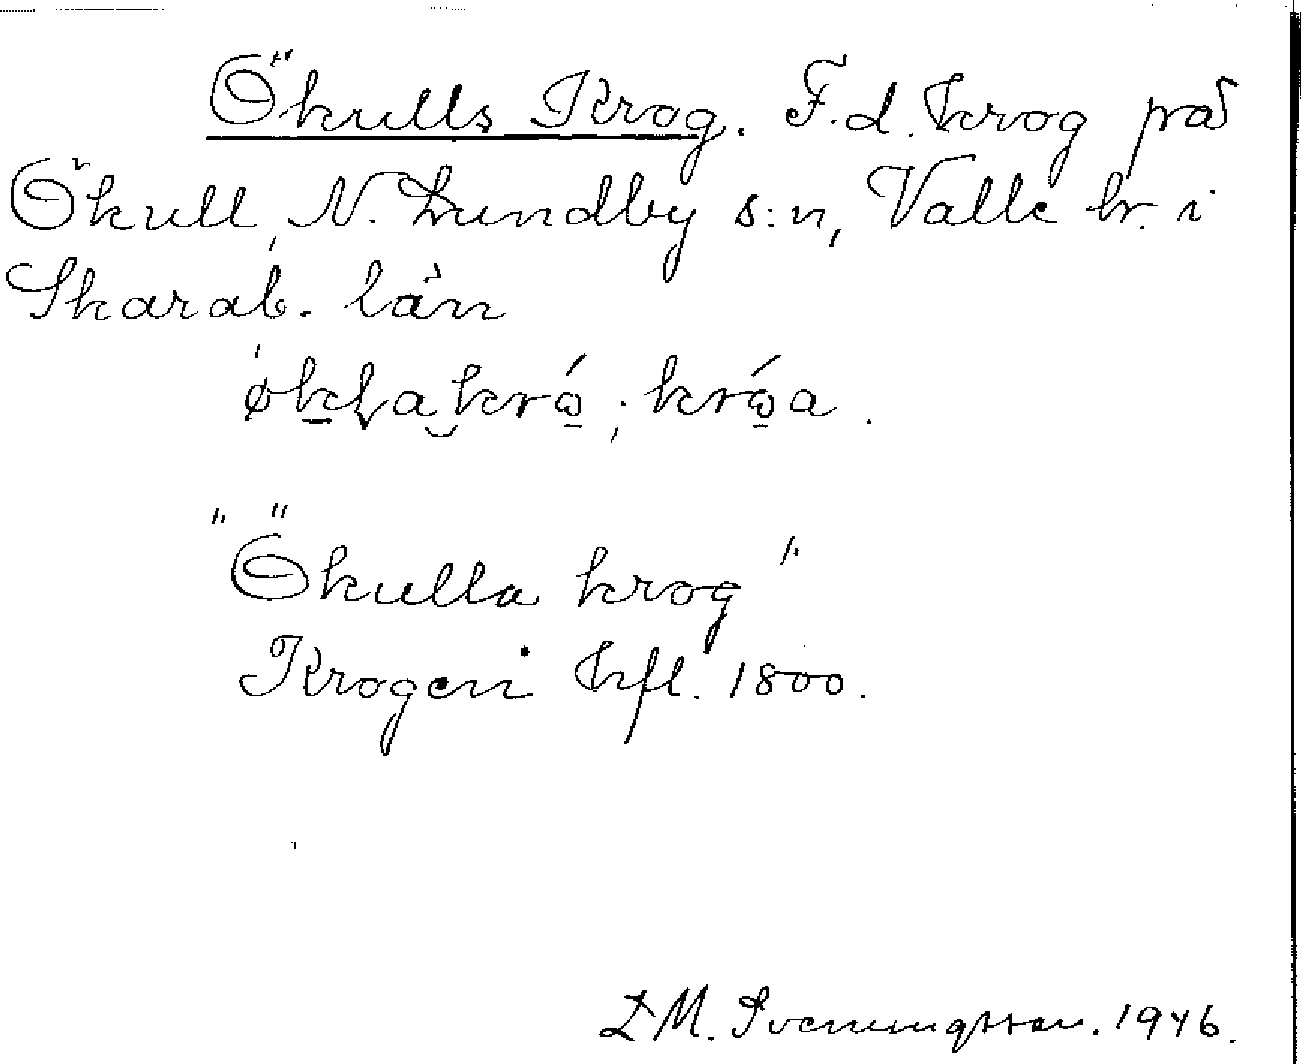 Ökulls Krog. F.d. krog på
Ökull, N. Lundby s:n, Valle hr. i
Skarab. län
krǫ́a.
"Ökulla krog"
Krogen hfl. 1800.
L M. Svenungsson. 1946.